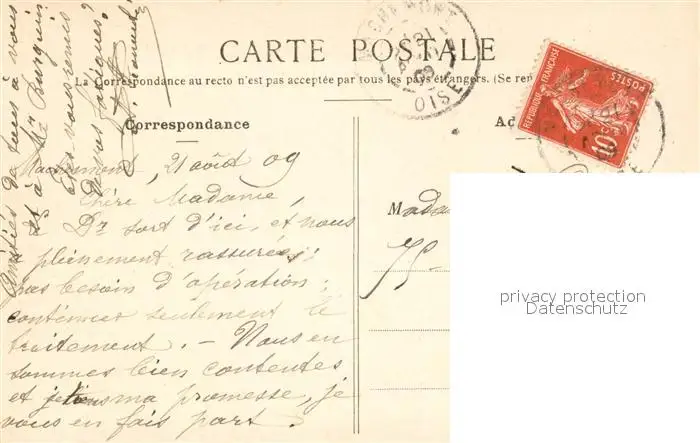 CARTE POSTALE
La Correspondance au recto n'est pas acceptée par tous les pays étrangers. (Se ren
Correspondance
Ad
MONT
21
09
OISE
RÉPUBLIQUE FRANÇAISE
POSTES
10c
Machemont, 21 août 09
Chère Madame,
Dr sort d'ici, et nous
pleinement rassurées;
pas besoin d'opération;
continuer seulement le
traitement. - Nous en
sommes bien contentes
et je tiens ma promesse, je
vous en fais part.
Amitiés de tous à vous
et à Mr
Etes vous remis
de vos fatigues?
Mada
75-
privacy protection
Datenschutz